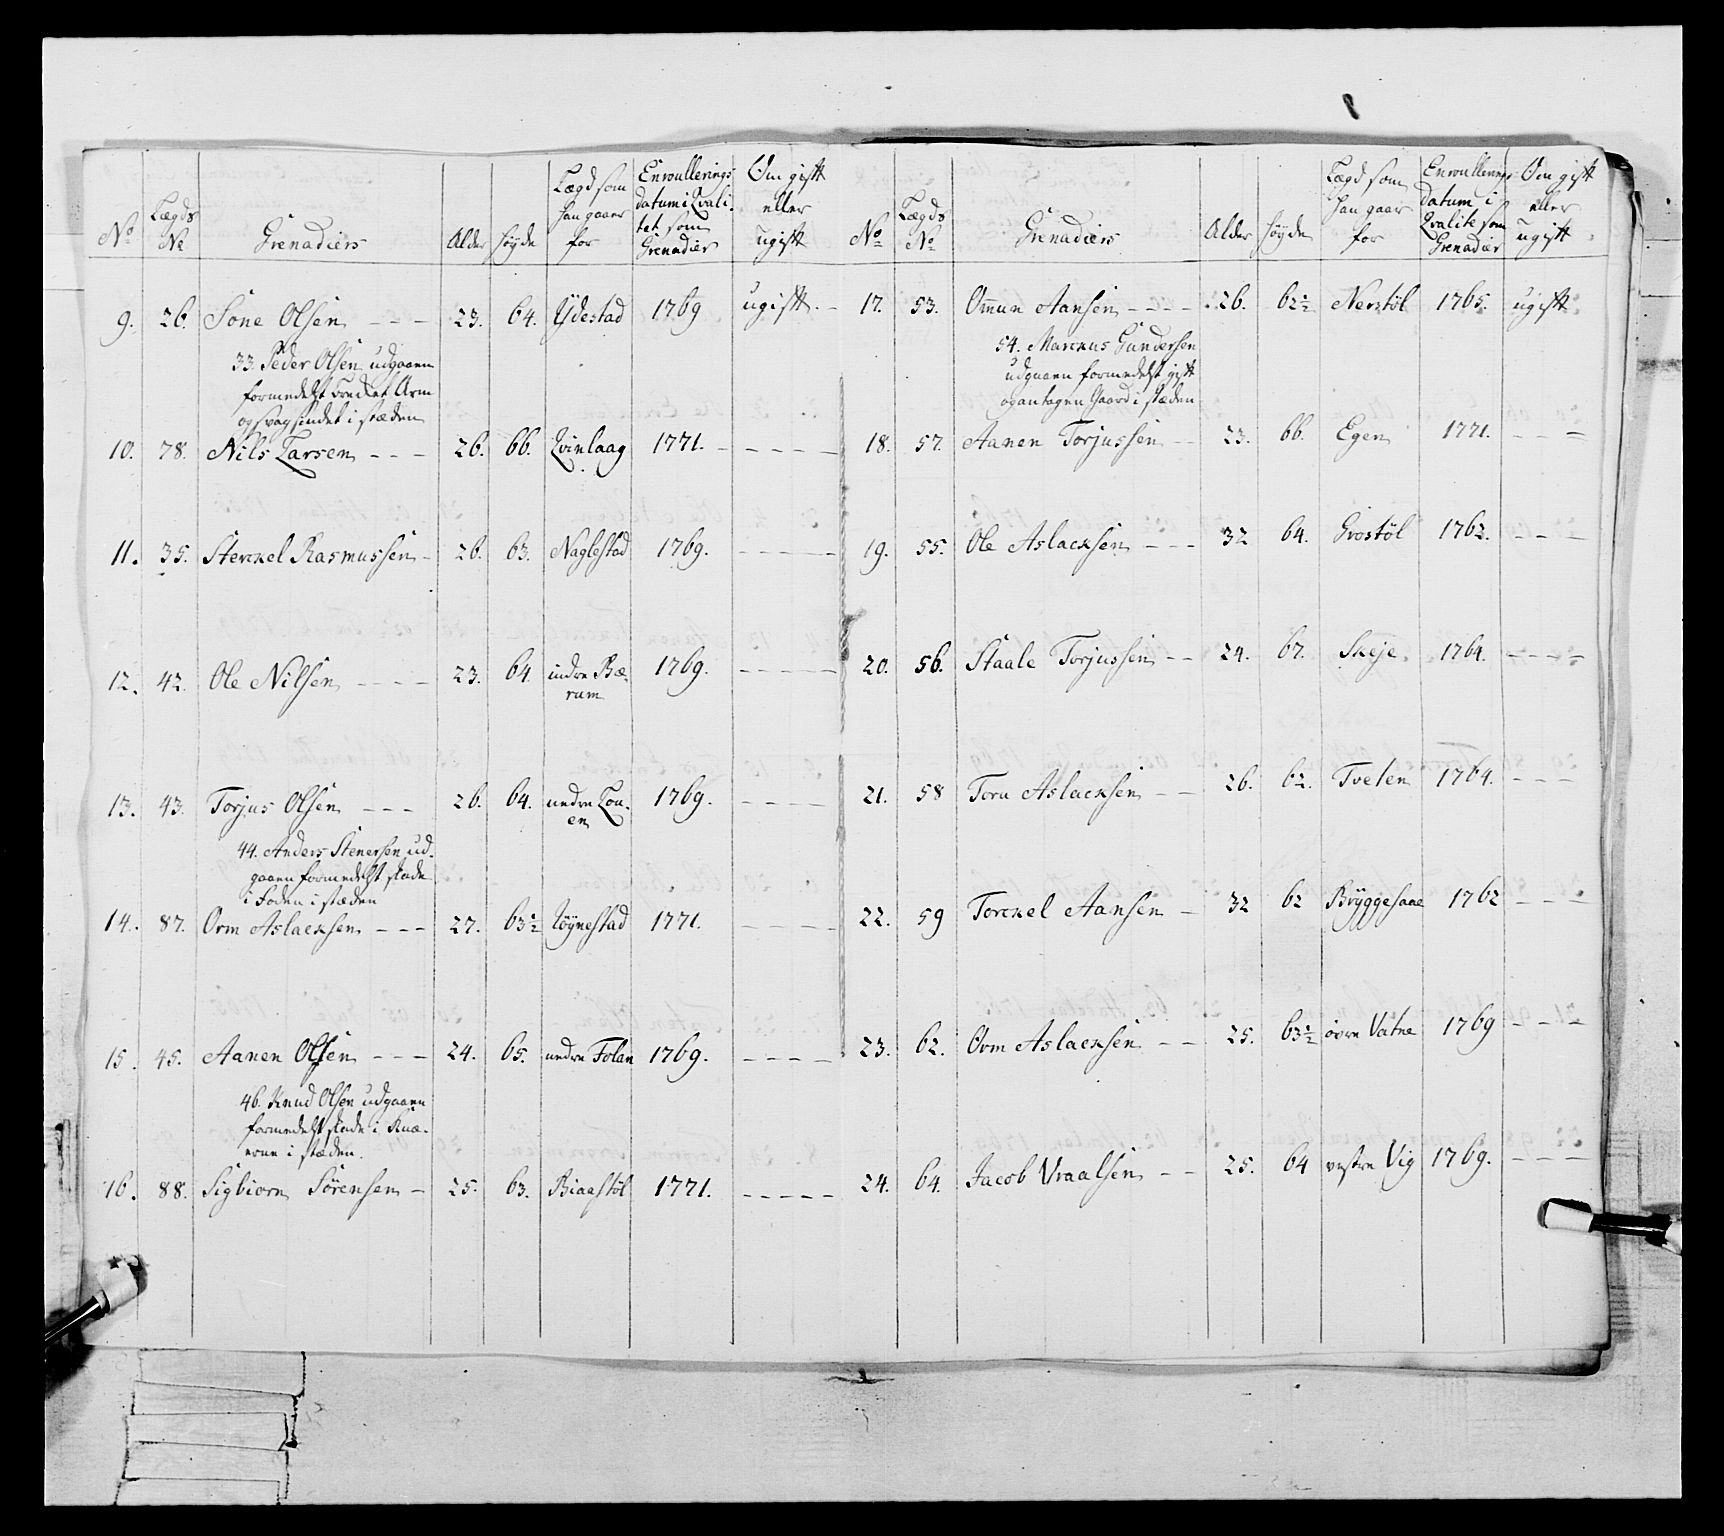 No Lægds No Grenadiers Alder Høyde Lægd som han gaaer for Enroullerings datum i Qvalitet som Grenadier Om gift eller ugift
9. 26. Sone Olsen - - - 23. 64. Ydestad 1769 ugift. -
33. Peder Olsen udgaaen
formedelst brecket Arm
og svagsindet i stæden
10. 78. Nils Larsen - - - 26. 66. Qvinlaag 1771. - - - - -
11. 35. Sterckel Rasmussen - 26. 63. Naglestad 1769. - - - - -
12. 42. Ole Nilsen - - - - 23. 64. indre Bærum 1769. - - - - -
13. 43. Torjus Olsen - - - 26. 64. nedre Louen 1769. - - - -
44. Anders Stenersen ud-
gaaen formedelst skade
i Foden i stæden
14. 87. Orm Aslacksen - - - 27. 63½ Røynestad 1771. - - - -
15. 45. Aanen Olsen - - - 24. 65. nedre Folan 1769. - - - -
46. Knud Olsen udgaaen
formedelst skade i Knæ-
erne i stæden.
16. 88. Sigbiorn Sörensen - 25. 63. Biaastöl 1771. - - - - -
No Lægds No Grenadiers Alder Høyde Lægd som han gaar for Enroullerings datum i Qvalite som Grenadier Om gift eller ugift
17. 53. Omun Aansen - - - - 26. 62½ Nerstöl 1765. ugift.
54. Marckus Gundersen
udgaaen formedelst gift
og antagen Gaard i stæden
18. 57. Aanen Torjussen - - 23. 66. Egen 1771. - - -
19. 55. Ole Aslacksen - - - 32 64. Grostöl 1762. - - -
20. 56. Staale Torjussen - - 24. 67. Skeje 1764. - - - -
21. 58 Toru Aslacksen - - 26. 62. Tveten 1764. - - -
22. 59 Torckel Aansen - 32 62 Bryggesaae 1762 - - -
23. 62. Orm Aslacksen - - 25. 63½ övre Vatne 1769 - - -
24. 64. Jacob Vraalsen - - 25. 64 vestre Vig 1769. - - -